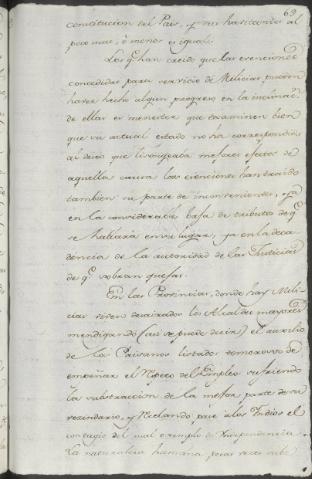 69
constitucion del Pais, y nos ha traido al
poco mas, ó menos es igual.
Los q.e han creido que las exenciones
concedidas para servicio de Milicias, pueden
haver hecho algun progreso en la inclinac.n
de ellas es menester que examinen bien
que su actual estado no ha correspondido
al deseo que lisongeaba mejores efectos de
aquella causa las exenciones han traido
tambien su parte de inconvenientes, ya
en la considerable baja de tributos de q.e
se hablará en su lugar, ya en la deca-
dencia de la autoridad de las Justicias
de q.e sobran quejas.
En las Provincias, donde hay Mili-
cias se ven desairados los Alcaldes mayores
mendigando (asi se puede decir) el auxilio
de los Paisanos listados temerosos de
empeñar el respeto del Empleo sufriendo
la substraccion de la mejor parte de su
vecindario, y recelando pase a los Indios el
contagio del mal exemplo de Independencia.
La naturaleza humana pocas veces sabe